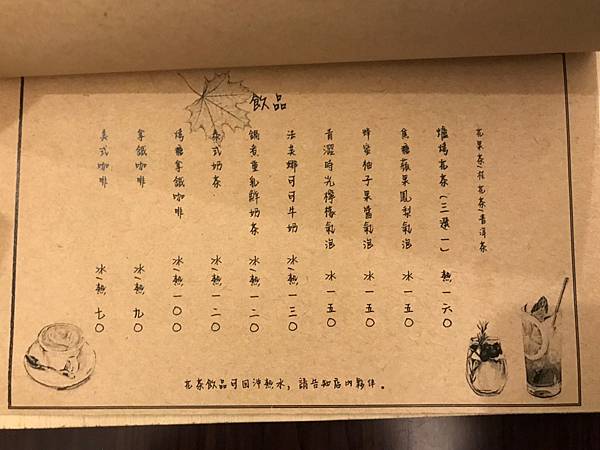 飲品
花果茶/桂花茶/普洱茶
爐烤花茶(三選一) 熱一六〇
焦糖蘋果鳳梨氣泡 冰一五〇
蜂蜜柚子果醬氣泡 冰一五〇
青澀時光檸檬氣泡 冰一五〇
法芙娜可可牛奶 冰/熱一三〇
鍋煮重乳鮮奶茶 冰/熱一二〇
泰式奶茶 冰/熱一二〇
焦糖拿鐵咖啡 冰/熱一〇〇
拿鐵咖啡 冰/熱九〇
美式咖啡 冰/熱七〇
花茶飲品可回沖熱水,請告知店內夥伴。